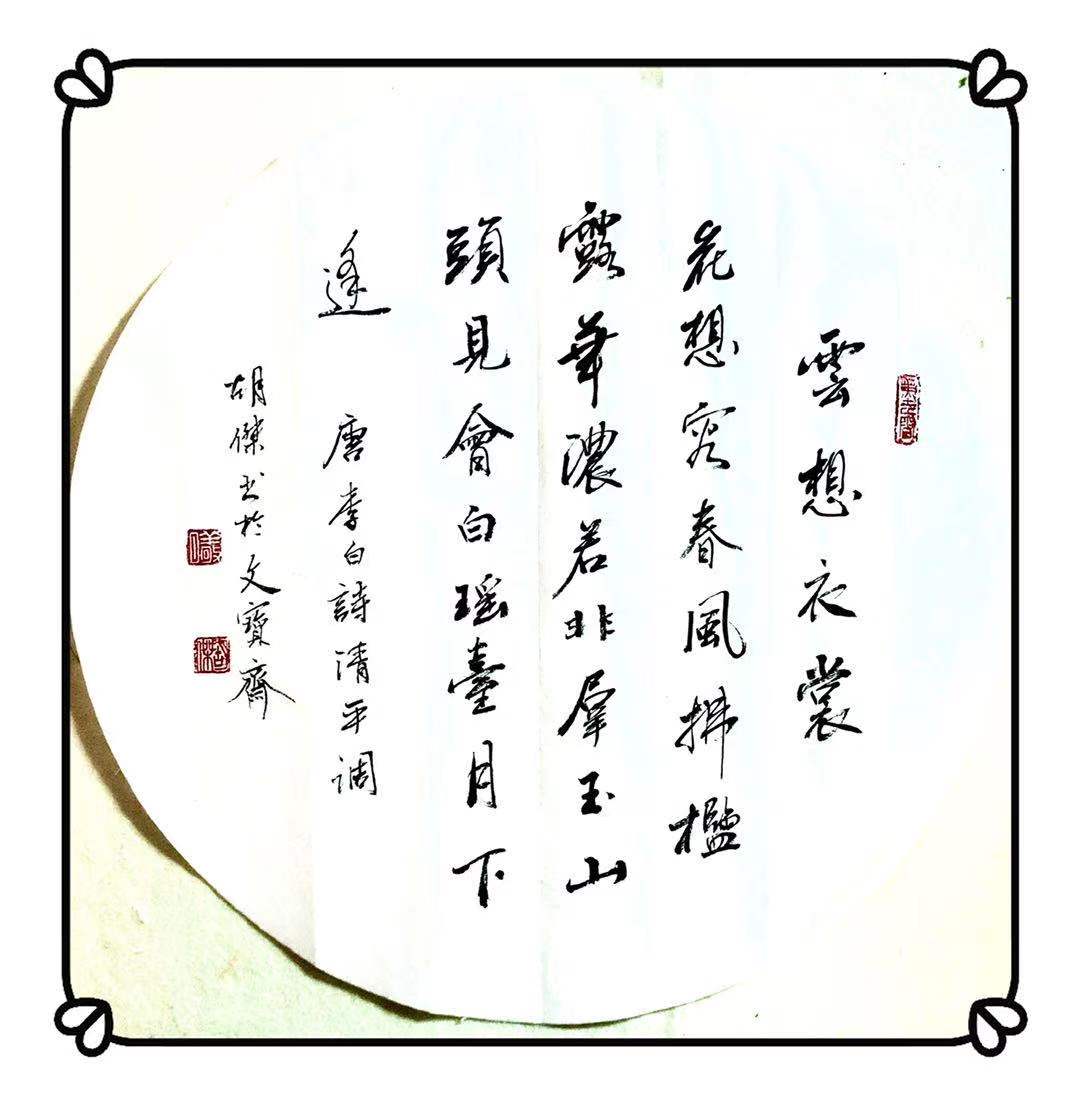 雲想衣裳
花想容春風拂檻
露華濃若非羣玉山
頭見會白瑶臺月下
逢 唐李白詩清平调
胡傑书於文寶齋